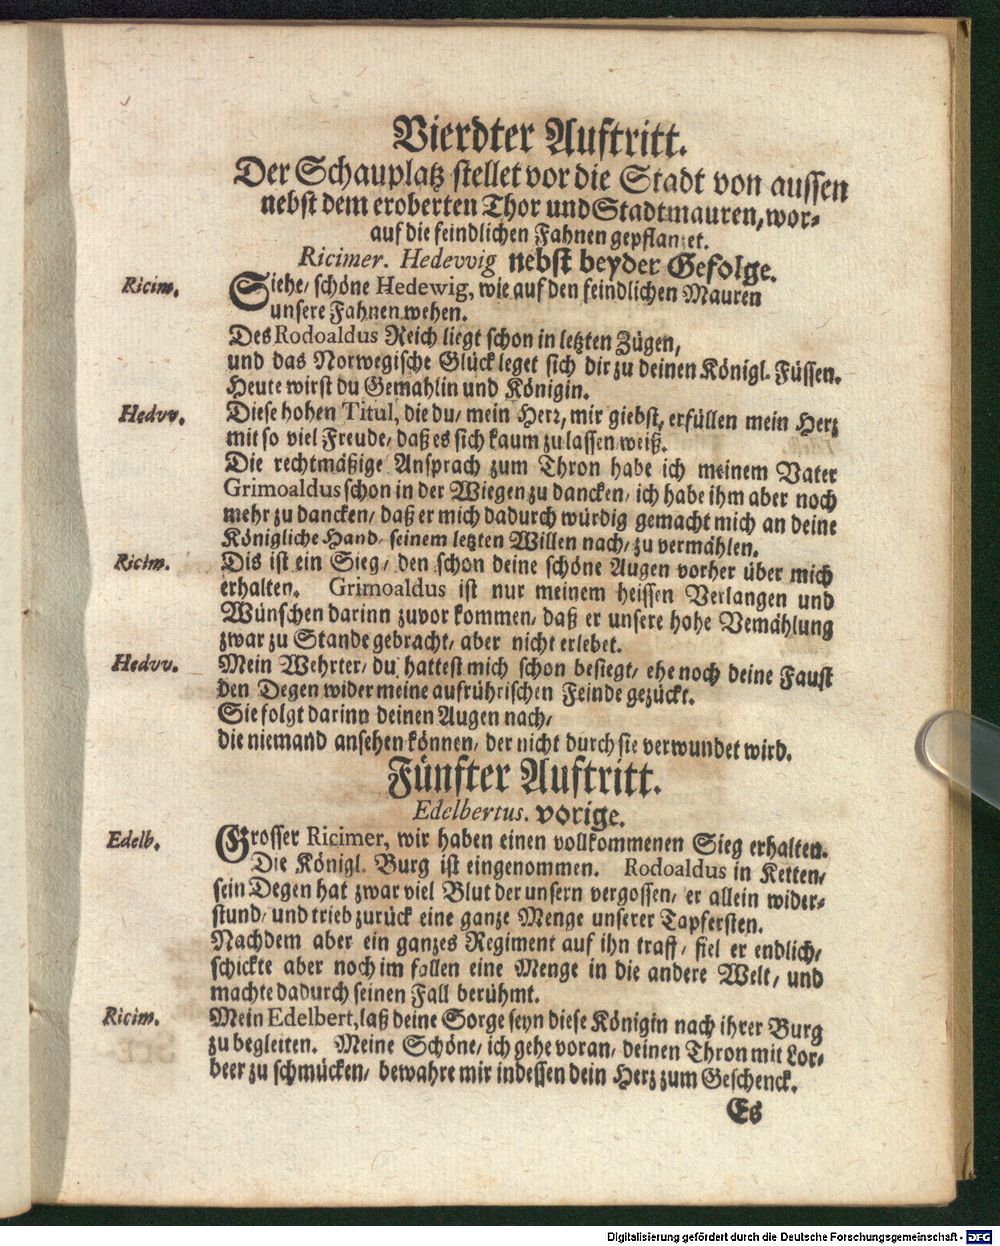 Vierdter Auftritt.
Der Schauplatz stellet vor die Stadt von aussen
nebst dem eroberten Thor und Stadtmauren, wor-
auf die feindlichen Fahnen gepflantzet.
Ricimer. Hedevvig nebst beyder Gefolge.
Ricim. Siehe/ schöne Hedewig, wie auf den feindlichen Mauren
unsere Fahnen wehen.
Des Rodoaldus Reich liegt schon in letzten Zügen,
und das Norwegische Glück leget sich dir zu deinen Königl. Füssen.
Heute wirst du Gemahlin und Königin.
Hedvv. Diese hohen Titul, die du/ mein Herz, mir giebst, erfüllen mein Herz
mit so viel Freude/ daß es sich kaum zu lassen weiß.
Die rechtmäßige Ansprach zum Thron habe ich meinem Vater
Grimoaldus schon in der Wiegen zu dancken/ ich habe ihm aber noch
mehr zu dancken/ daß er mich dadurch würdig gemacht mich an deine
Königliche Hand/ seinem letzten Willen nach/ zu vermählen.
Ricim. Dis ist ein Sieg/ den schon deine schöne Augen vorher über mich
erhalten. Grimoaldus ist nur meinem heissen Verlangen und
Wünschen darinn zuvor kommen/ daß er unsere hohe Vemählung
zwar zu Stande gebracht/ aber nicht erlebet.
Hedvv. Mein Wehrter/ du hattest mich schon besiegt/ ehe noch deine Faust
den Degen wider meine aufrührischen Feinde gezückt.
Sie folgt darinn deinen Augen nach/
die niemand ansehen können/ der nicht durch sie verwundet wird.
Fünfter Auftritt.
Edelbertus. vorige.
Edelb. Grosser Ricimer, wir haben einen vollkommenen Sieg erhalten.
Die Königl. Burg ist eingenommen. Rodoaldus in Ketten/
sein Degen hat zwar viel Blut der unsern vergossen/ er allein wider-
stund/ und trieb zurück eine ganze Menge unserer Tapfersten.
Nachdem aber ein ganzes Regiment auf ihn traff/ fiel er endlich/
schickte aber noch im fallen eine Menge in die andere Welt/ und
machte dadurch seinen Fall berühmt.
Ricim. Mein Edelbert, laß deine Sorge seyn diese Königin nach ihrer Burg
zu begleiten. Meine Schöne/ ich gehe voran/ deinen Thron mit Lor-
beer zu schmücken/ bewahre mir indessen dein Herz zum Geschenck.
Es
Digitalisierung gefördert durch die Deutsche Forschungsgemeinschaft - DFG